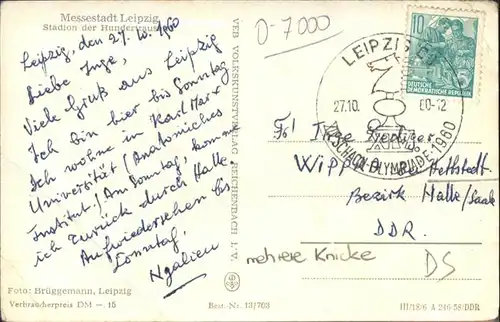 Messestadt Leipzig
Stadion der Hunderttausend
Leipzig, den 27. 10. 1960
Liebe Inge,
Viele Grüß aus Leipzig
Ich bin hier bis Sonntag
Ich wohne in Karl Marx
Universität (Anatomiches
Institut) Am Sonntag, komme
ich zurück durch Halle
Aufwiedersehen bis
Sonntag,
Foto: Brüggemann, Leipzig
Verbraucherpreis DM -.15
VEB VOLKSKUNSTVERLAG REICHENBACH I. V.
Best. Nr. 13/703
O-7000
10
DEUTSCHE
DEMOKRATISCHE REPUBLIK
LEIPZIG
27.10. 60-12
SCHACH-OLYMPIADE 1960
Frl Inge
WIPPRA Hettstedt
Bezirk Halle/Saale
DDR.
mehrere Knicke
DS
III/18/6 A 246/58/DDR